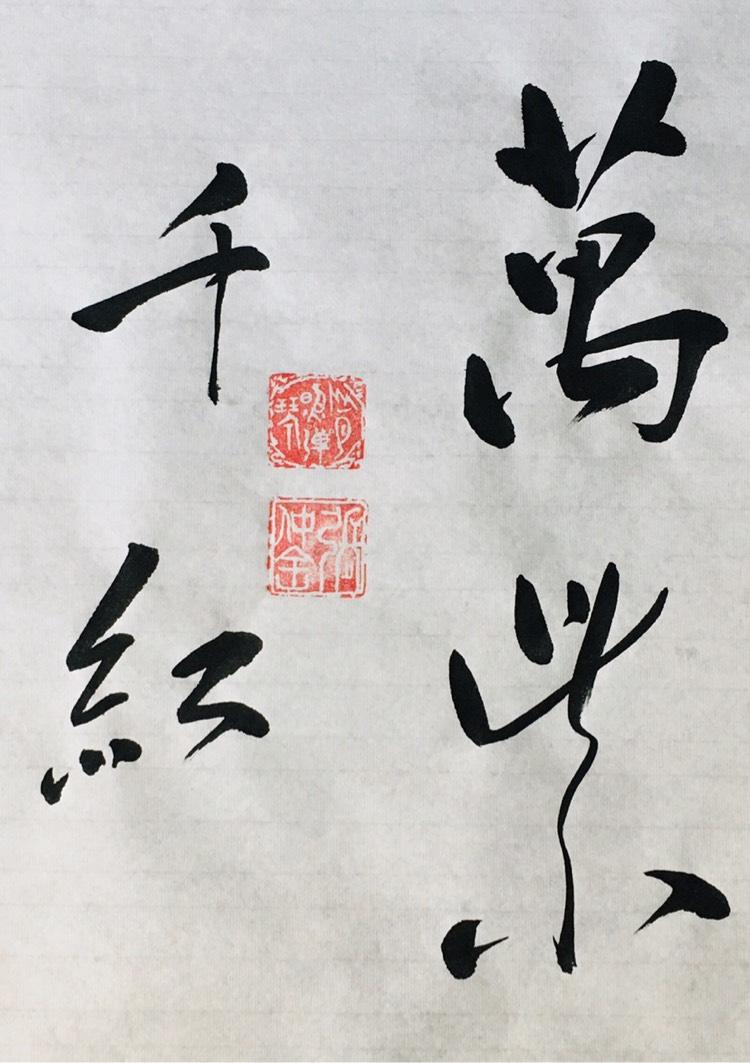 萬紫
千紅